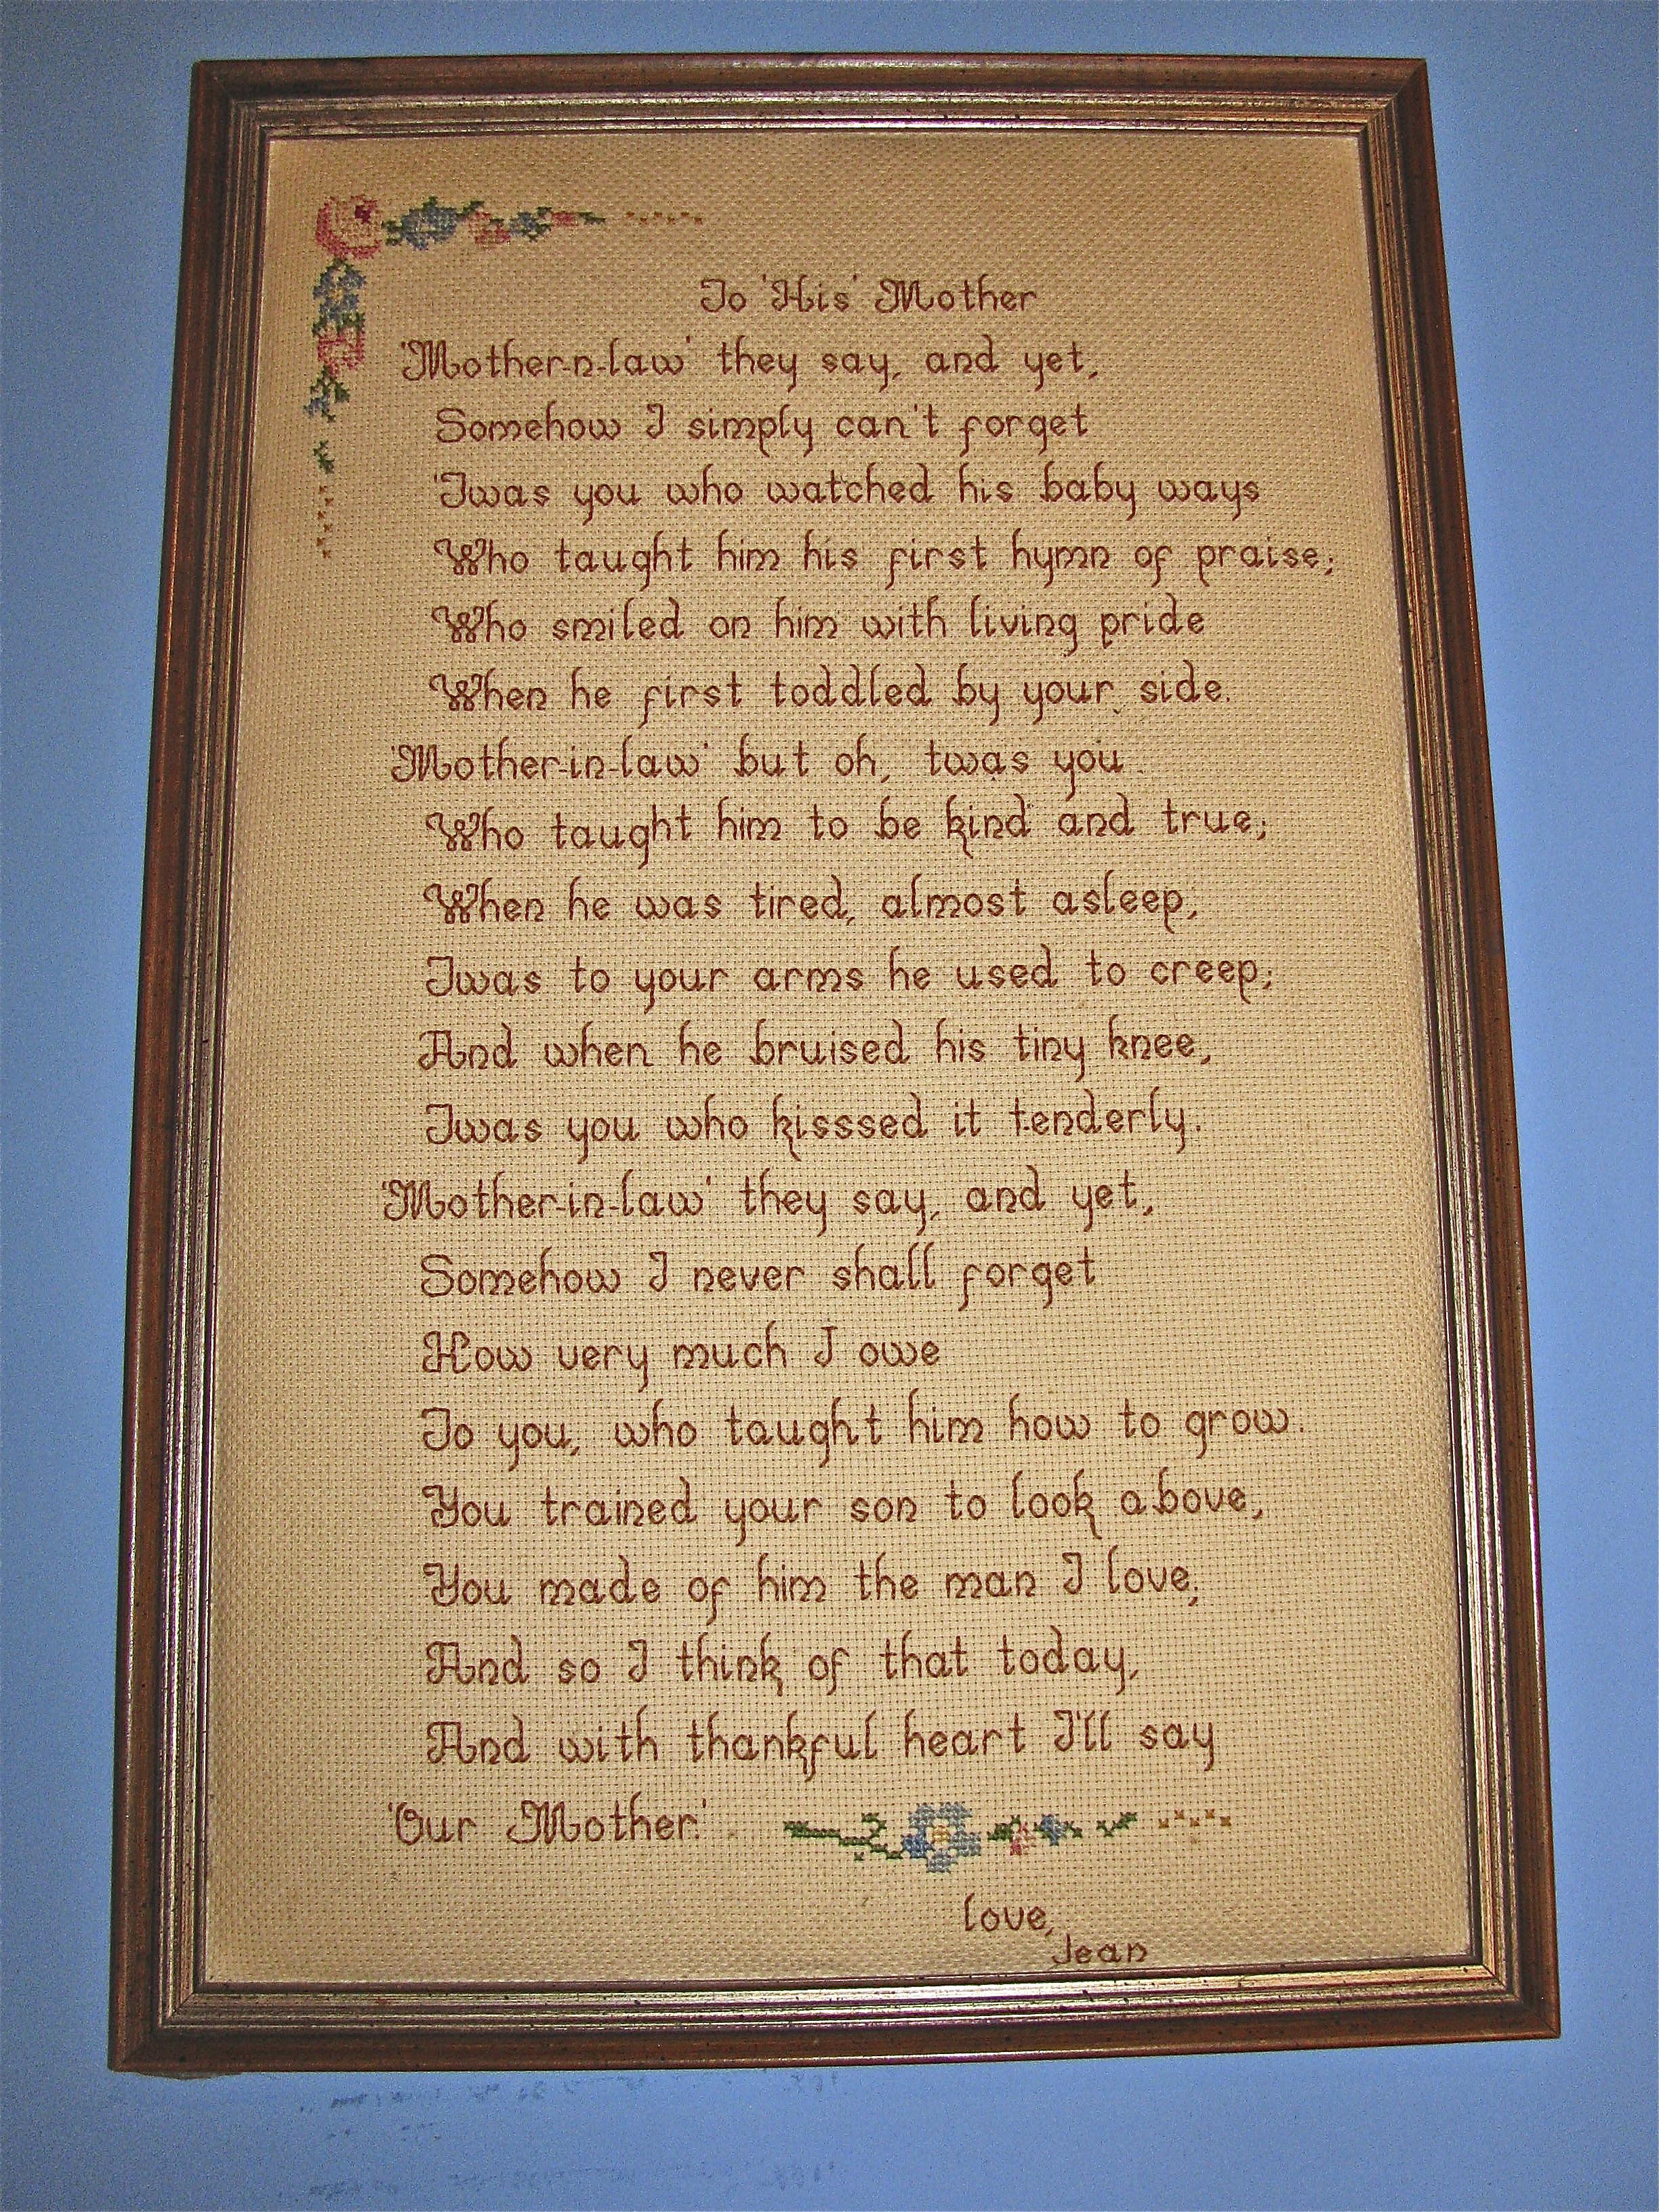 To 'His' Mother
'Mother-n-law' they say, and yet,
Somehow I simply can't forget
'Twas you who watched his baby ways
Who taught him his first hymn of praise;
Who smiled on him with living pride
When he first toddled by your side.
'Mother-in-law' but oh, twas you
Who taught him to be kind and true;
When he was tired, almost asleep,
Twas to your arms he used to creep;
And when he bruised his tiny knee,
Twas you who kisssed it tenderly.
'Mother-in-law' they say, and yet,
Somehow I never shall forget
How very much I owe
To you, who taught him how to grow.
You trained your son to look above,
You made of him the man I love;
And so I think of that today,
And with thankful heart I'll say
'Our Mother.'
love,
Jean